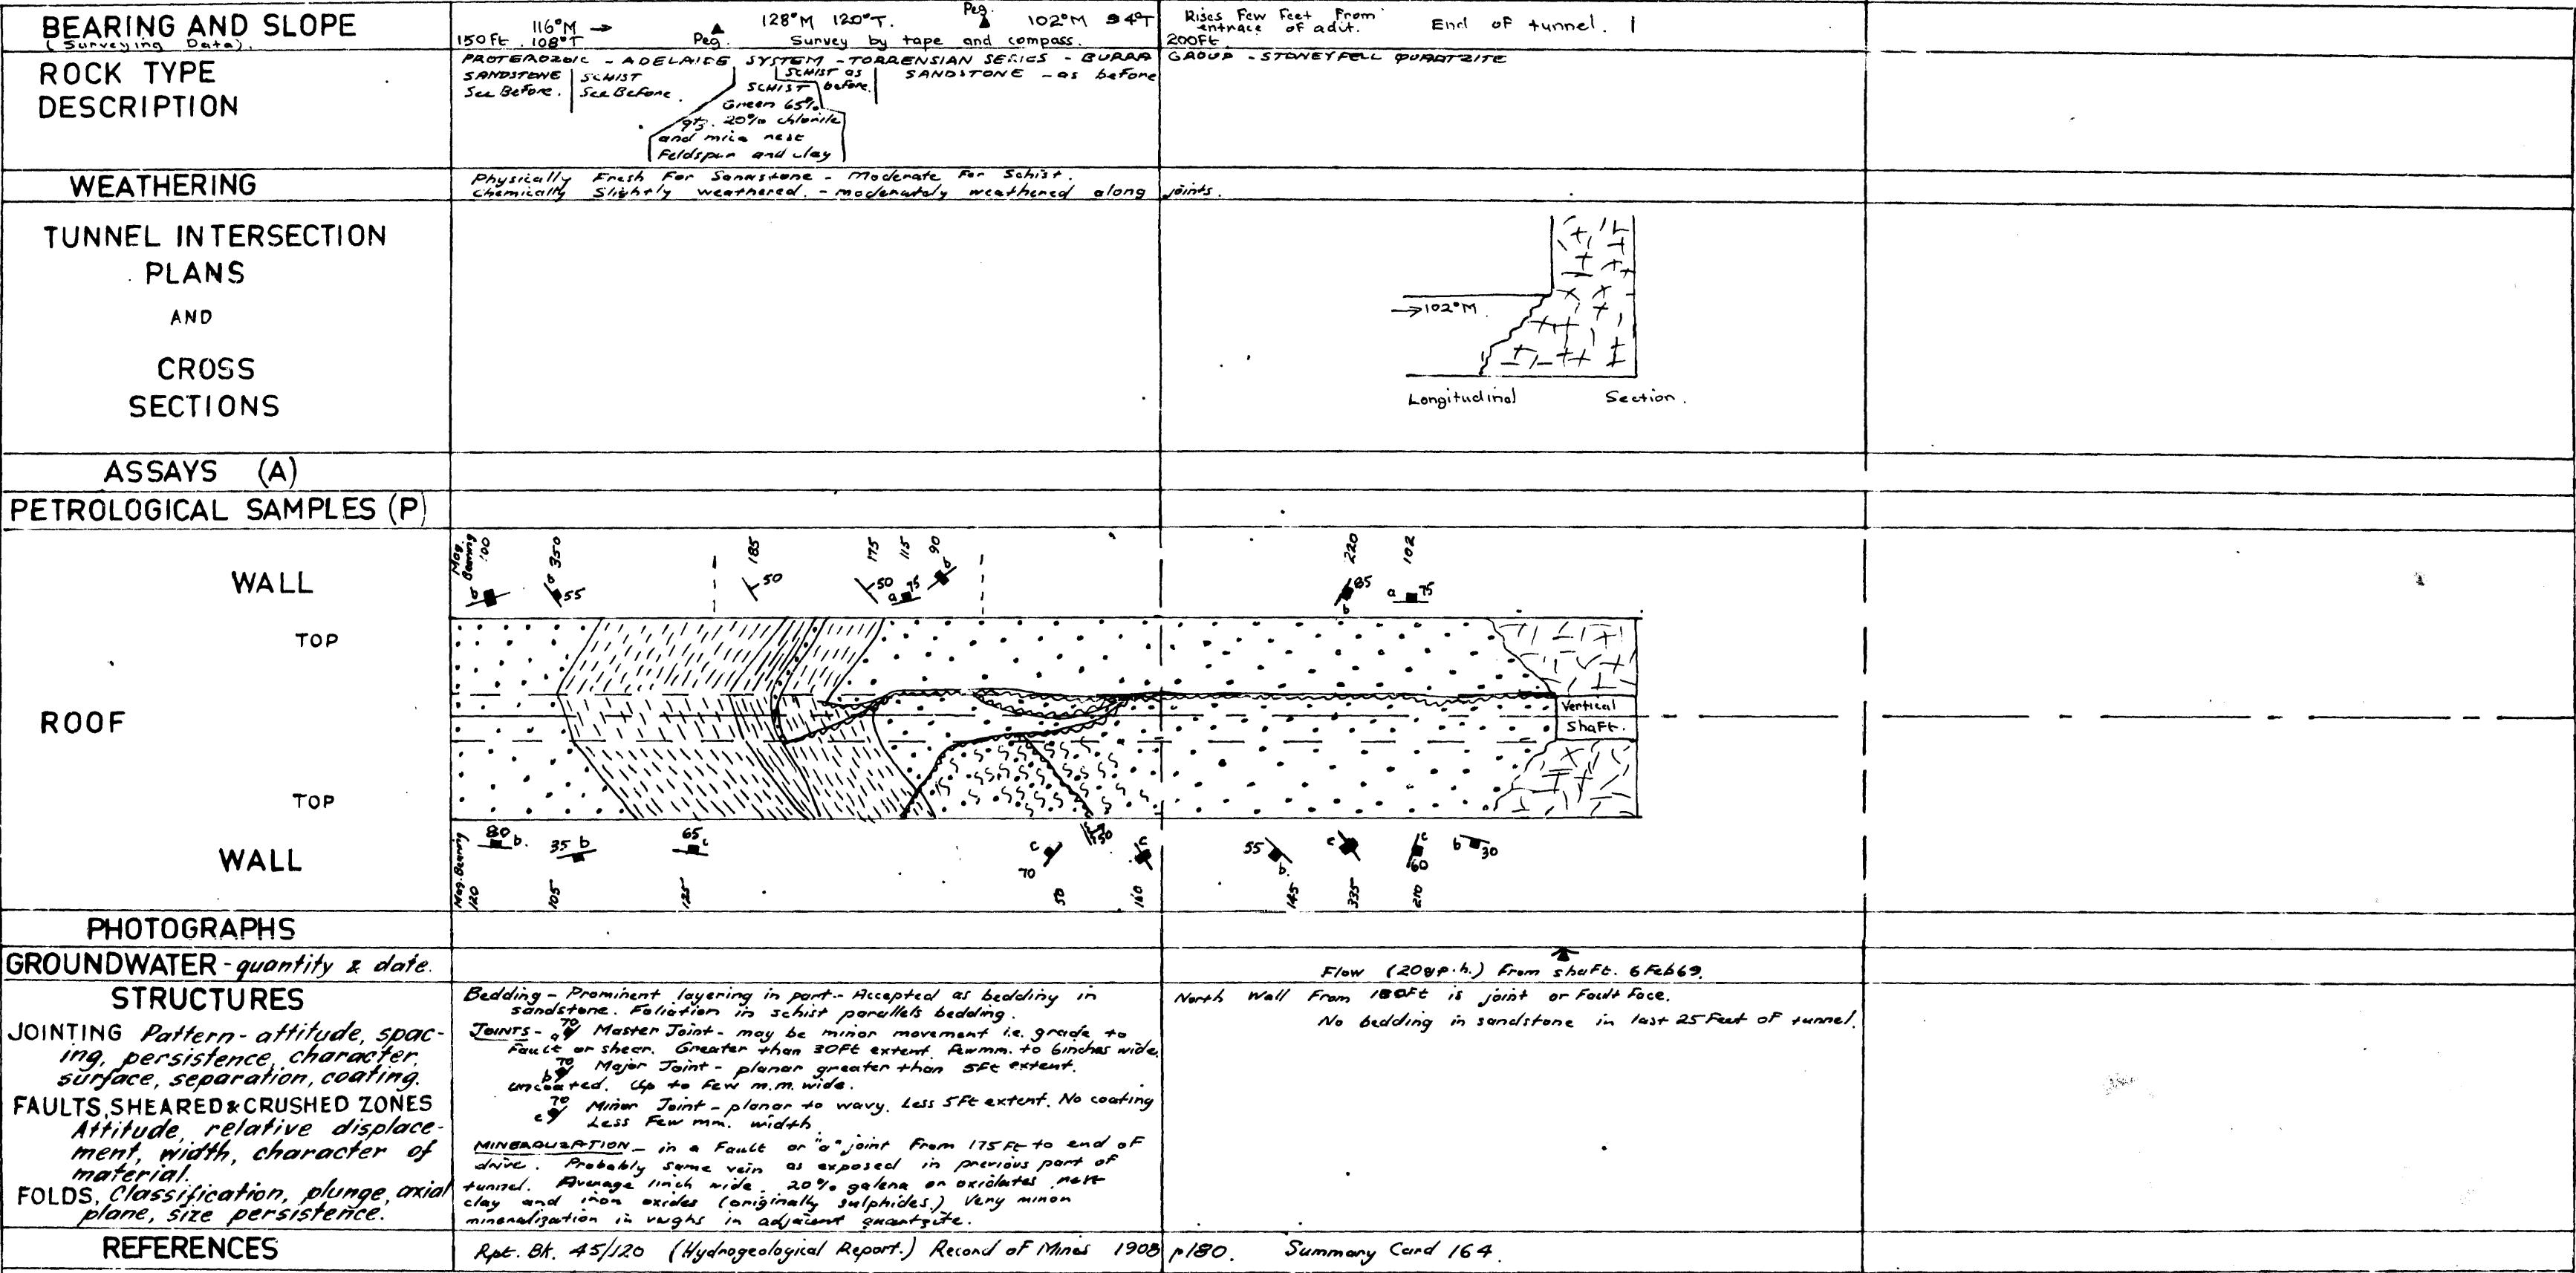 BEARING AND SLOPE
(Surveying Data).
150 Ft 116°M → 108°T
Peg. 128°M 120°T. Peg. 102°M 94°T
Survey by tape and compass.
Rises Few Feet From entrace of adit.
200Ft
End of tunnel.
ROCK TYPE
DESCRIPTION
PROTEROZOIC - ADELAIDE SYSTEM - TORRENSIAN SERIES - BURRA GROUP - STONEYFELL QUARTZITE
SANDSTONE
See Before.
SCHIST
See Before.
SCHIST
Green 65%
qtz. 20% chlorite
and mica rest
Feldspar and clay
SCHIST as
before.
SANDSTONE - as before
WEATHERING
Physically Fresh For Sandstone - Moderate For Schist.
Chemically Slightly weathered. - moderately weathered along joints.
TUNNEL INTERSECTION
PLANS
AND
CROSS
SECTIONS
→102°M
Longitudinal Section.
ASSAYS (A)
PETROLOGICAL SAMPLES (P)
WALL
Mag. Bearing 100 350 185 175 115 90 220 102
b b 55 50 50 a 75 b 85 b a 75
TOP
ROOF
Vertical
Shaft.
TOP
WALL
80 b. 35 b 65 c c 70 50 c 55 b. c c 60 b 30
Mag. Bearing 120 105 125 50 160 145 335 210
PHOTOGRAPHS
GROUNDWATER - quantity & date.
Flow (20 g.p.h.) From shaft. 6 Feb 69.
STRUCTURES
JOINTING Pattern - attitude, spac-
ing, persistence, character,
surface, separation, coating.
FAULTS, SHEARED & CRUSHED ZONES
Attitude, relative displace-
ment, width, character of
material.
FOLDS, Classification, plunge, axial
plane, size persistence.
Bedding - Prominent layering in part - Accepted as bedding in
sandstone. Foliation in schist parallels bedding.
JOINTS - a 70 Master Joint - may be minor movement i.e. grade to
Fault or shear. Greater than 30Ft extent. Few mm. to 6 inches wide.
b 70 Major Joint - planar greater than 5Ft extent.
uncoated. Up to Few m.m. wide.
c 70 Minor Joint - planar to wavy. Less 5 Ft extent. No coating
Less Few mm. width
MINERALIZATION - in a Fault or "a" joint From 175 Ft to end of
drive. Probably same vein as exposed in previous part of
tunnel. Average 1 inch wide. 20% galena or oxidates rest
clay and iron oxides (originally sulphides.) Very minor
mineralization in vughs in adjacent quartzite.
North Wall From 180Ft is joint or Fault Face.
No bedding in sandstone in last 25 Feet of tunnel.
REFERENCES
Rpt. Bk. 45/120 (Hydrogeological Report.) Record of Mines 1908 p180. Summary Card 164.